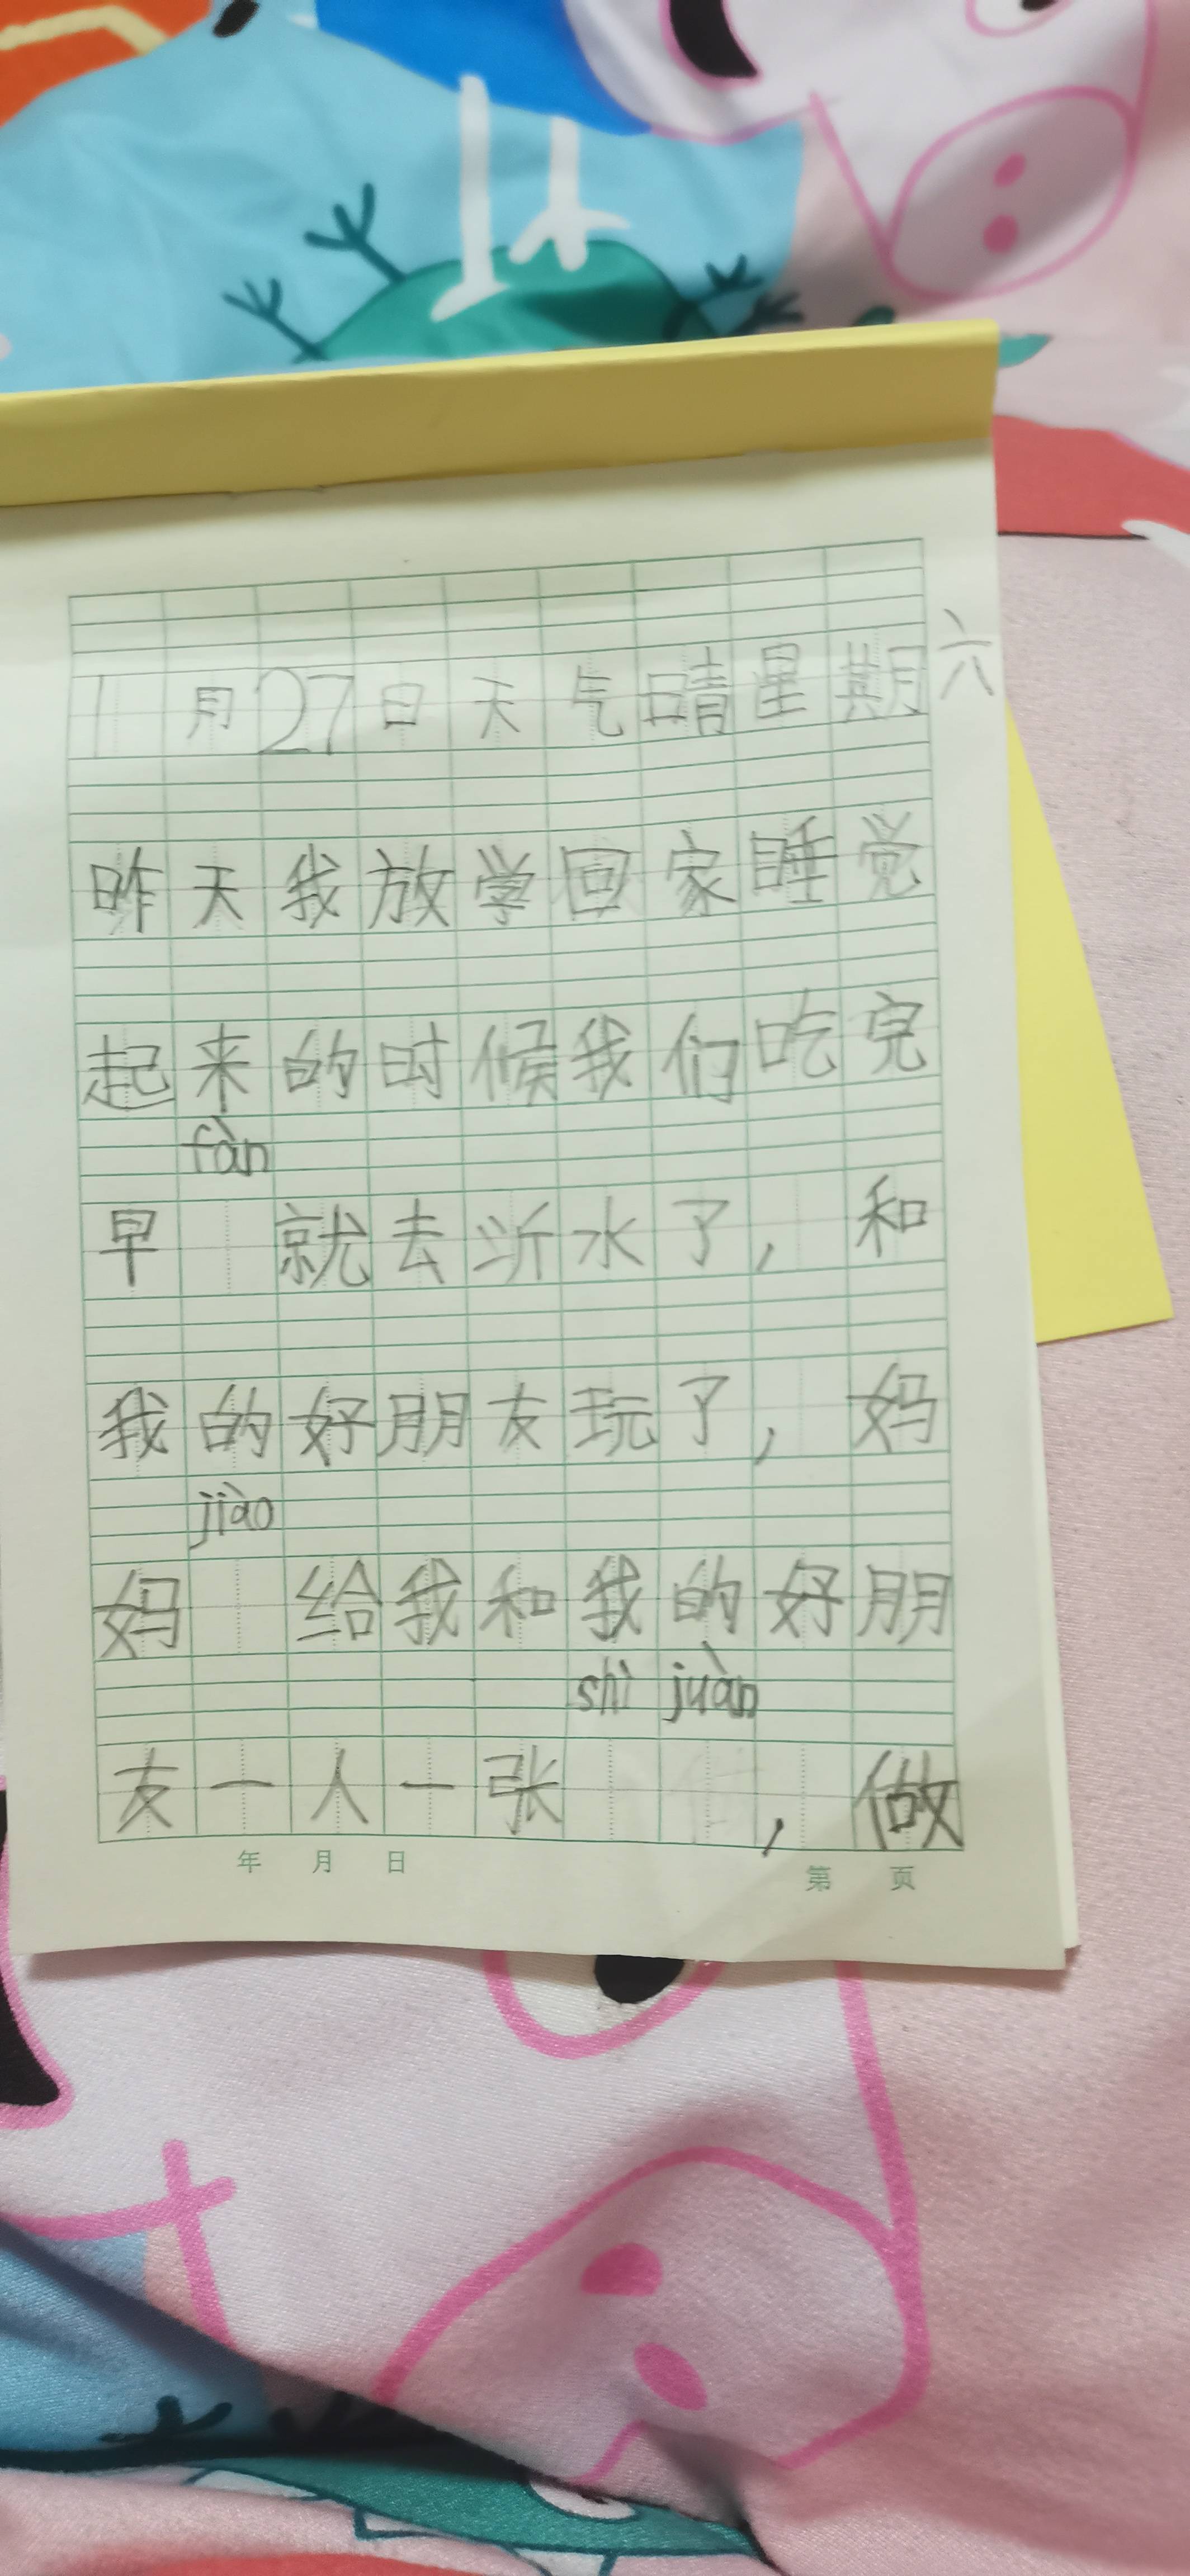 1月27日天气晴星期六
昨天我放学回家睡觉
起来的时候我们吃完
fàn
早 就去沂水了，和
我的好朋友玩了，妈
jiào
妈 给我和我的好朋
shì juàn
友一人一张 ，做
年 月 日 第 页